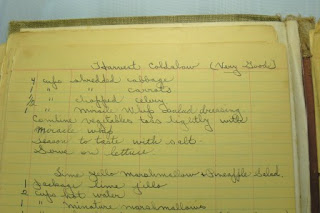 Harvest Coldslaw (Very Good)
4 cups shredded cabbage
1 " " carrots
1/2 " chopped celery
1 " Miracle Whip Salad dressing
Combine vegetables toss lightly with
Miracle whip
season to taste with salt.
Serve on lettuce
Lime Jello Marshmallow Pineapple Salad
1 Package lime jello
2 cups hot water
1 " Minature marshmallows